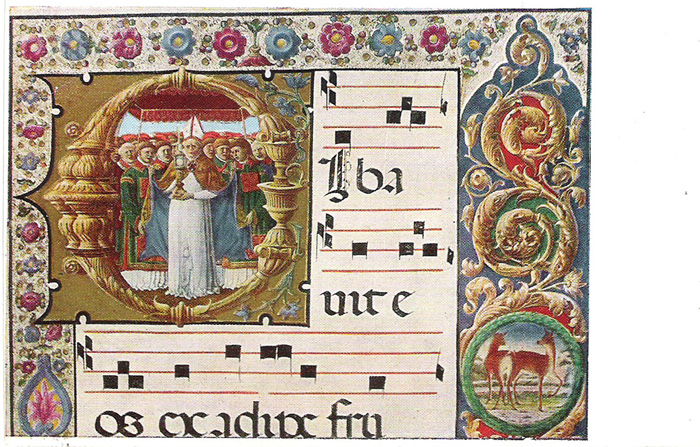 CIba
uit e
os ex adipe fru